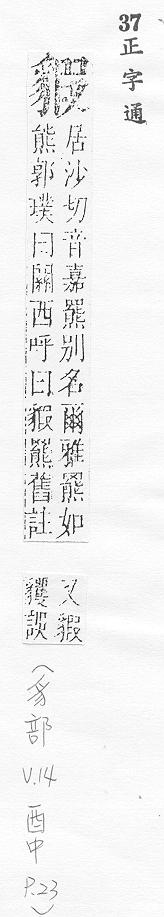 37
正字通
貑
居沙切音嘉羆別名爾雅羆如
熊郭璞曰關西呼曰貑熊舊註
又貑
誤
(豸部 V.14 酉中 P.23)